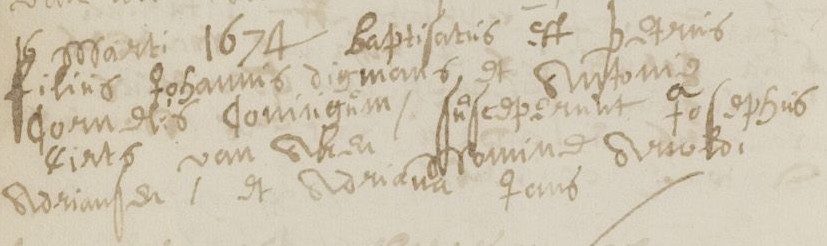 16 Marti 1674 baptisatus est petrus
filius Johannis digmans, et Antonie
Cornelis Coniugum / susceperunt Josephus
van nomine Arnoldi
Adriansen / et Adriana Jans